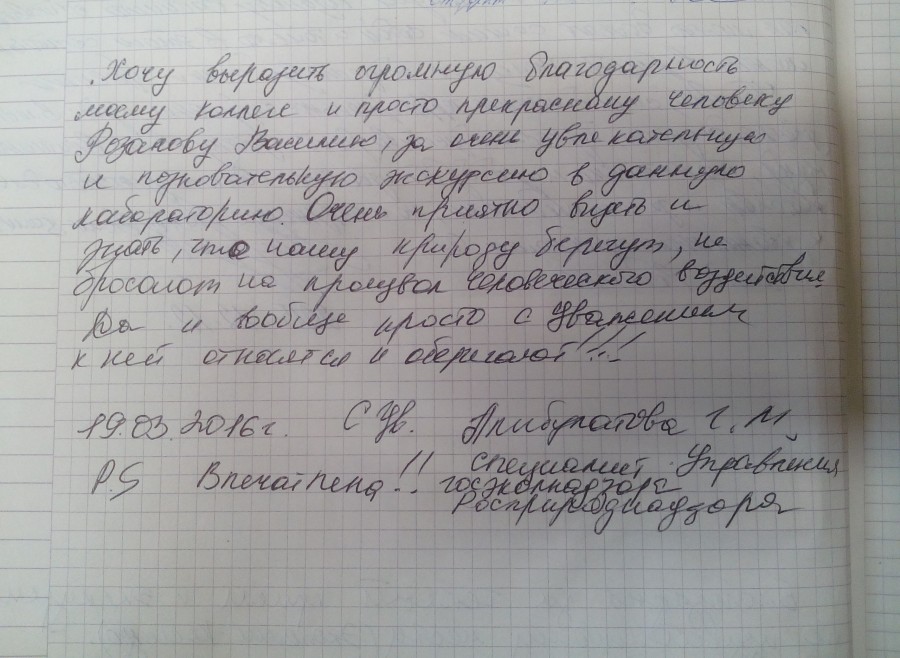 Хочу выразить огромную благодарность
моему коллеге и просто прекрасному человеку
Розанову Василию, за очень увлекательную
и позновательную экскурсию в данную
лабораторию. Очень приятно видеть и
знать, что нашу природу берегут, не
бросают на произвол человеческого воздействия.
Да и вообще просто с уважением
к ней относятся и оберегают!!!
19.03.2016г. С Ув. Алибулатова Г.М.
P.S Впечатлена!! специалист Управления
госэколнадзора
Росприроднадзора